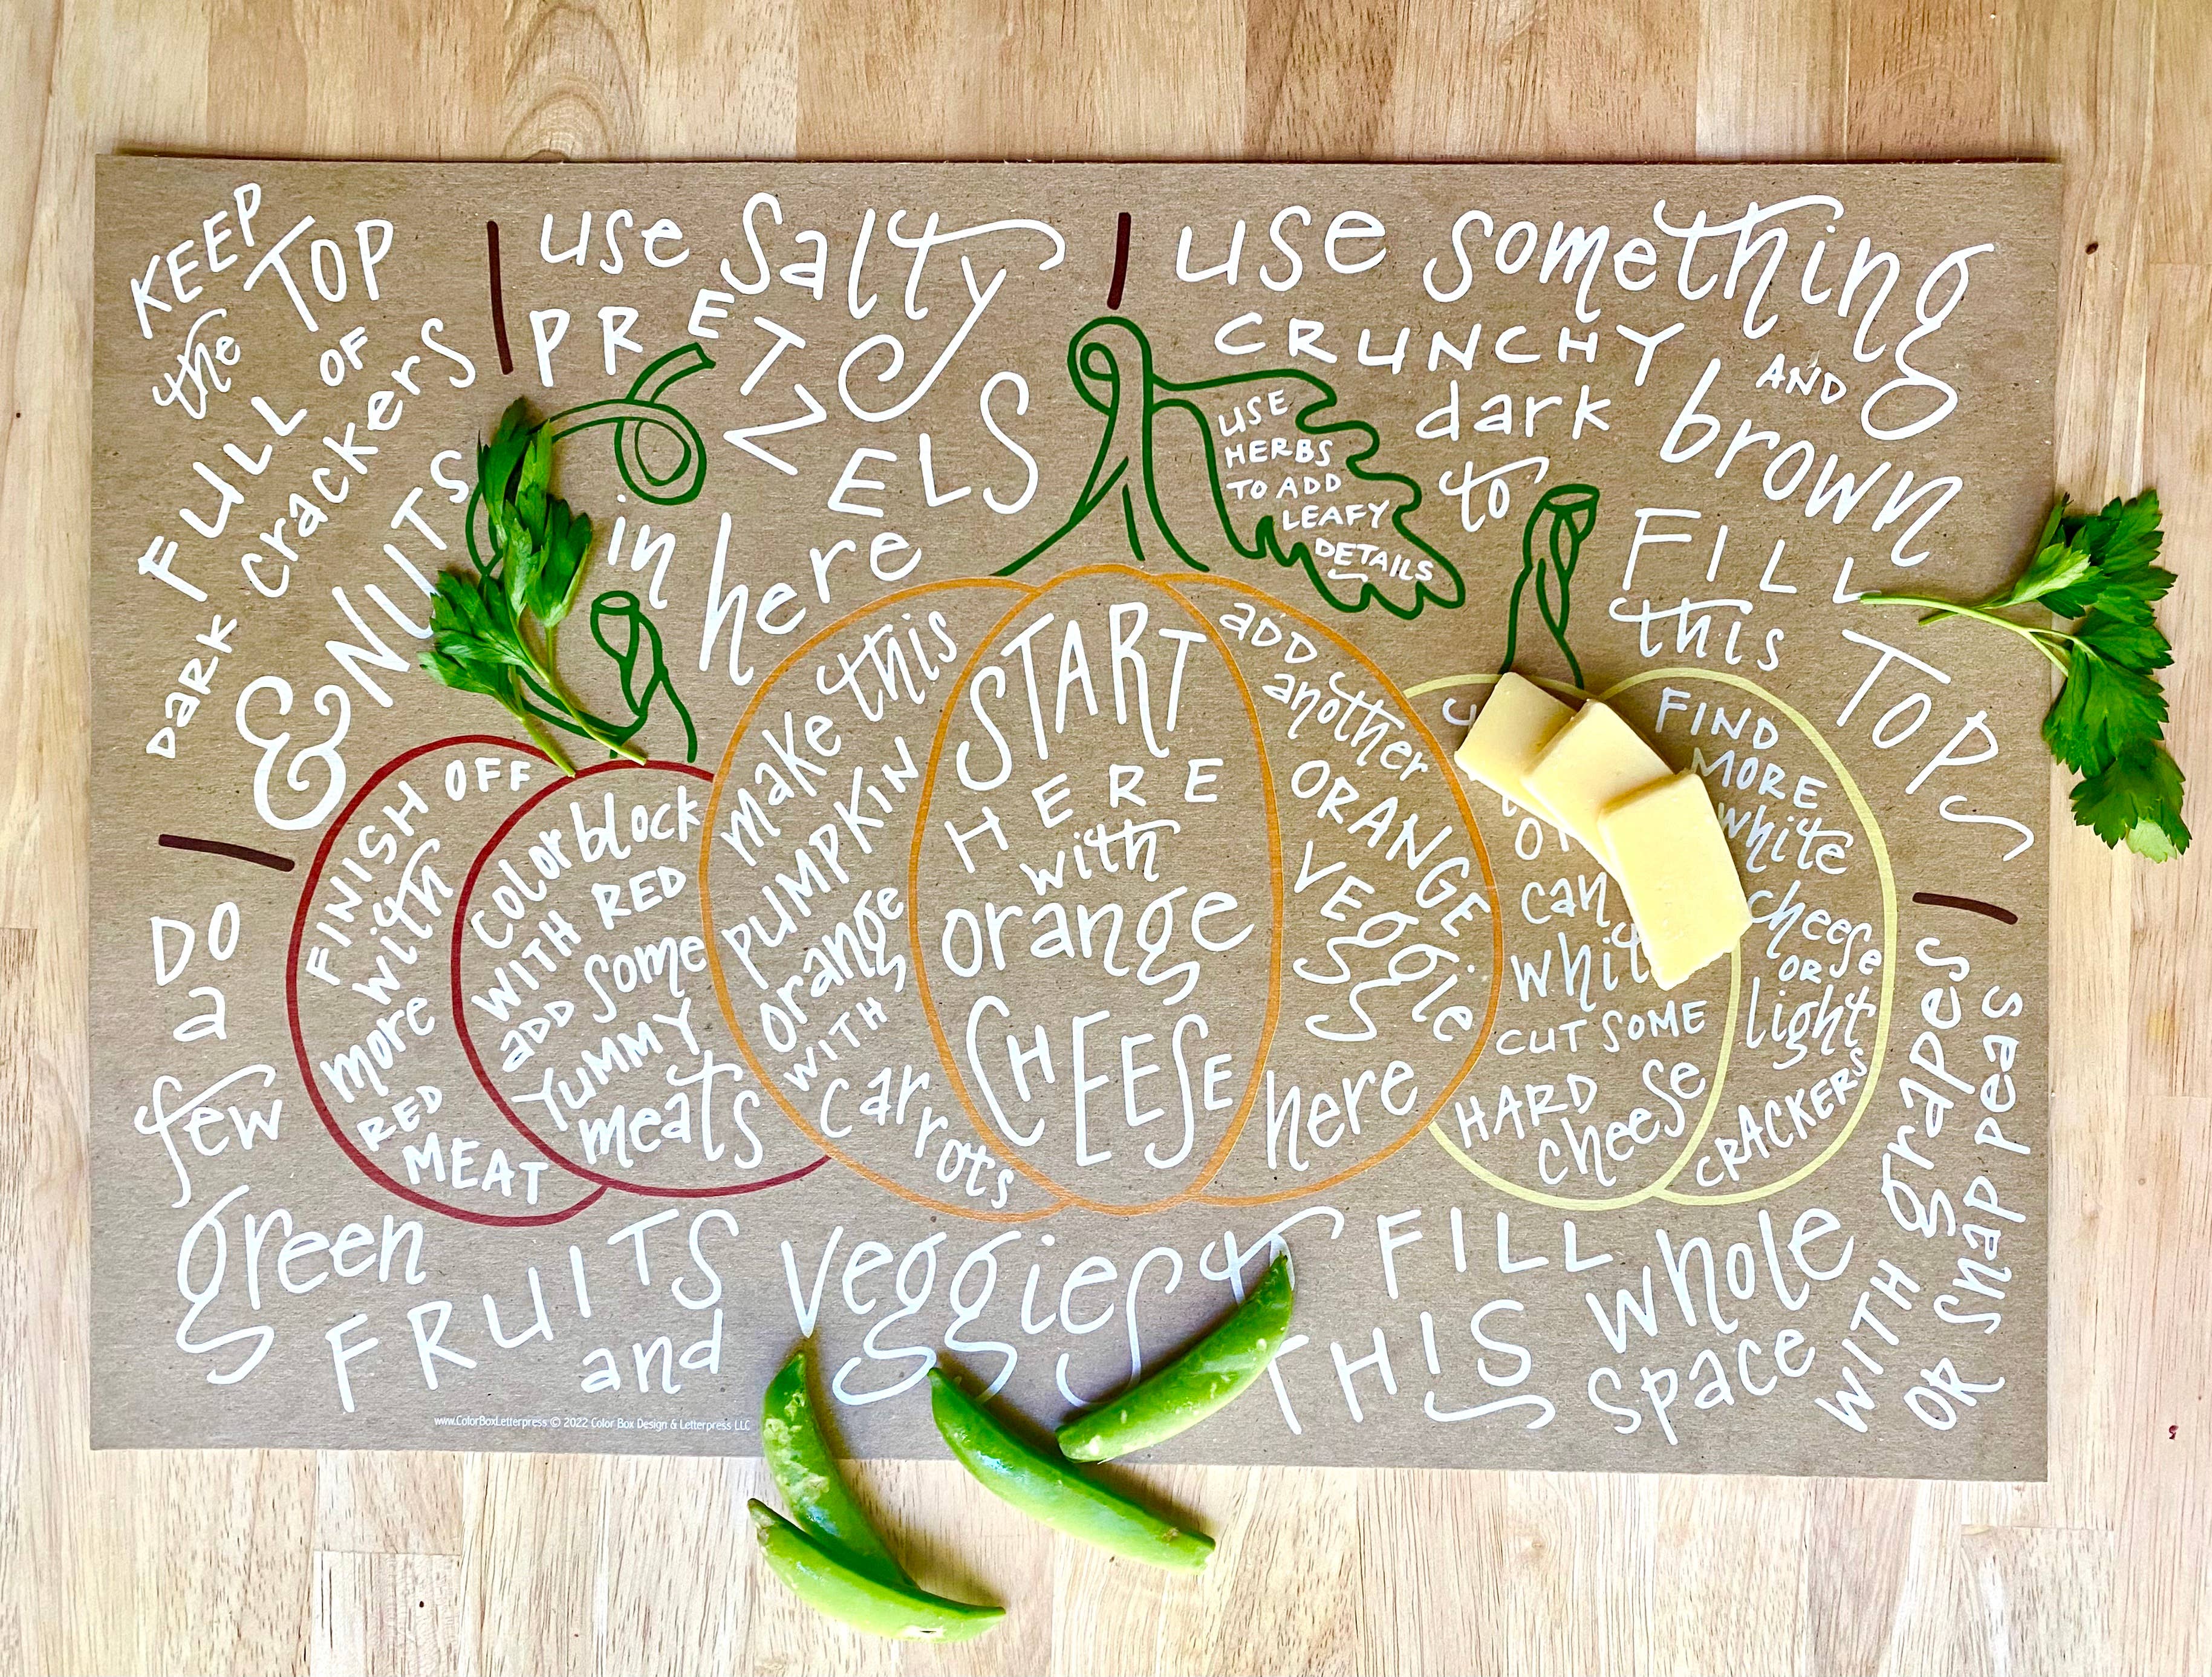 KEEP
the TOP
FULL OF
DARK crackers
& NUTS
use salty
PRETZELS
in here
use something
CRUNCHY AND
dark brown
to FILL
this TOPS
USE
HERBS
TO ADD
LEAFY
DETAILS
FINISH OFF
with
more
RED
MEAT
colorblock
WITH RED
ADD some
YUMMY
meats
make this
PUMPKIN
orange
WITH
carrots
START
HERE
with
orange
CHEESE
ADD
another
ORANGE
VEggie
here
can
CUT SOME
HARD
cheese
FIND
MORE
white
cheese
OR
light
CRACKERS
DO
a
few
green
FRUITS
and
veggies
FILL
THIS whole
space
WITH grapes
OR snap peas
www.ColorBoxLetterpress © 2022 Color Box Design & Letterpress LLC